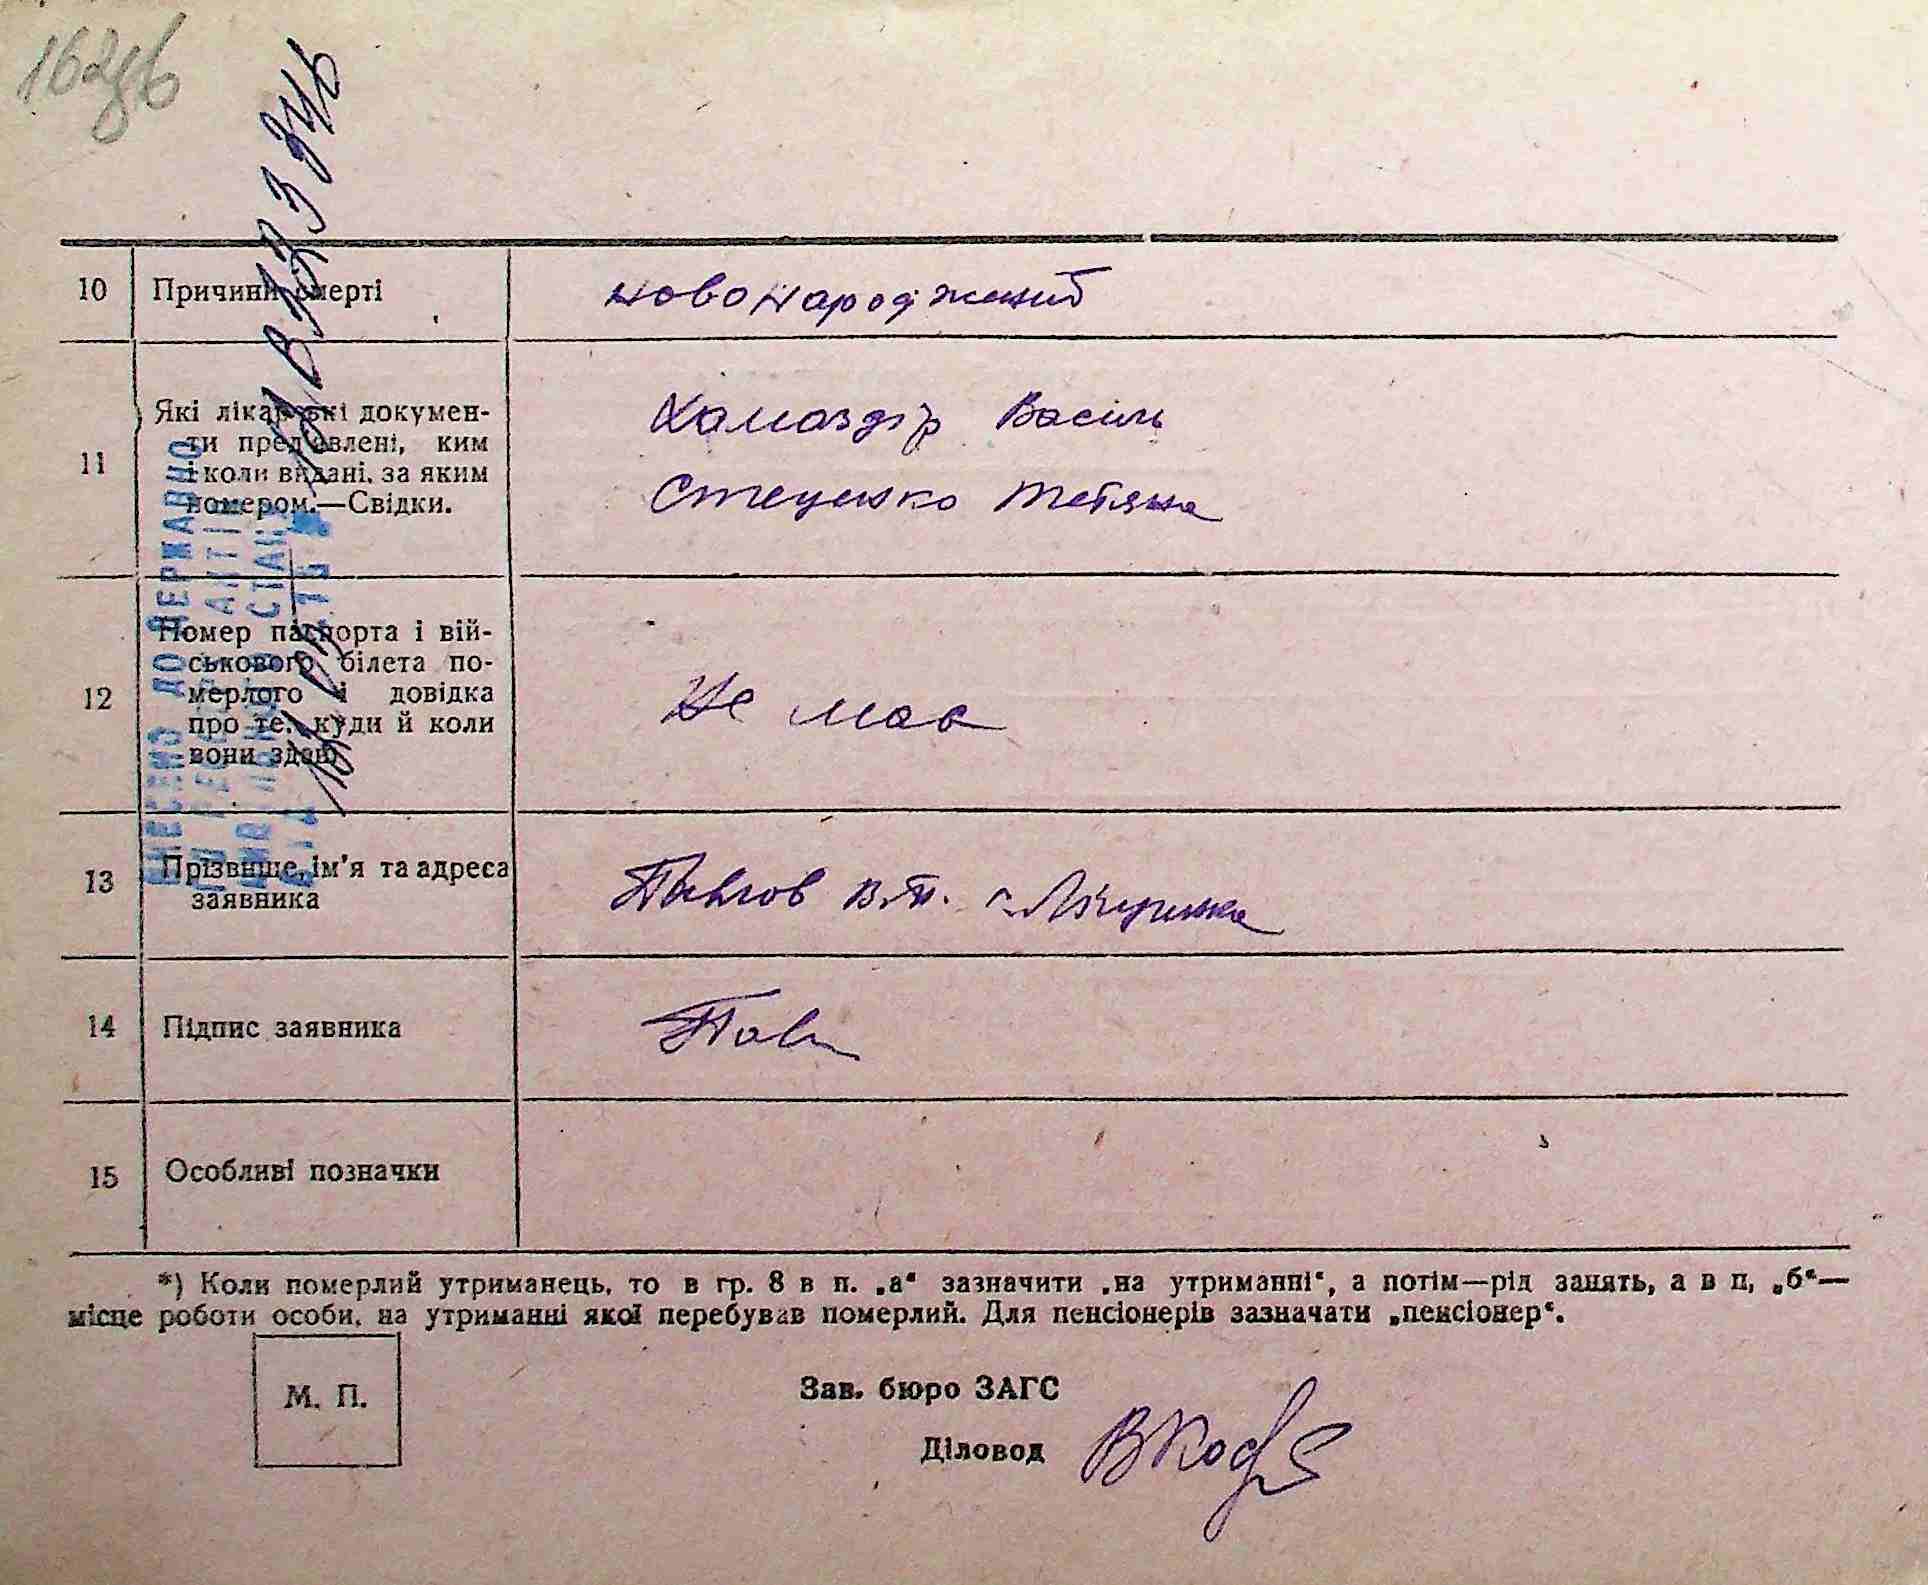 162зв
10 Причини смерті новонароджений
11 Які лікарські докумен-
ти представлені, ким
і коли видані, за яким
номером.—Свідки.
Хамаздір Василь
Стеценко Тетяна
12 Номер паспорта і вій-
ськового білета по-
мерлого і довідка
про те, куди й коли
вони здані
Не має
13 Прізвище, ім'я та адреса
заявника
Павлов В.П.
14 Підпис заявника Пав
15 Особливі позначки
ВНЕСЕНО ДО ДЕРЖАВНО
*) Коли померлий утриманець, то в гр. 8 в п. „а“ зазначити „на утриманні“, а потім—рід занять, а в п, „б“—
місце роботи особи, на утриманні якої перебував померлий. Для пенсіонерів зазначати „пенсіонер“.
М. П.
Зав. бюро ЗАГС
Діловод